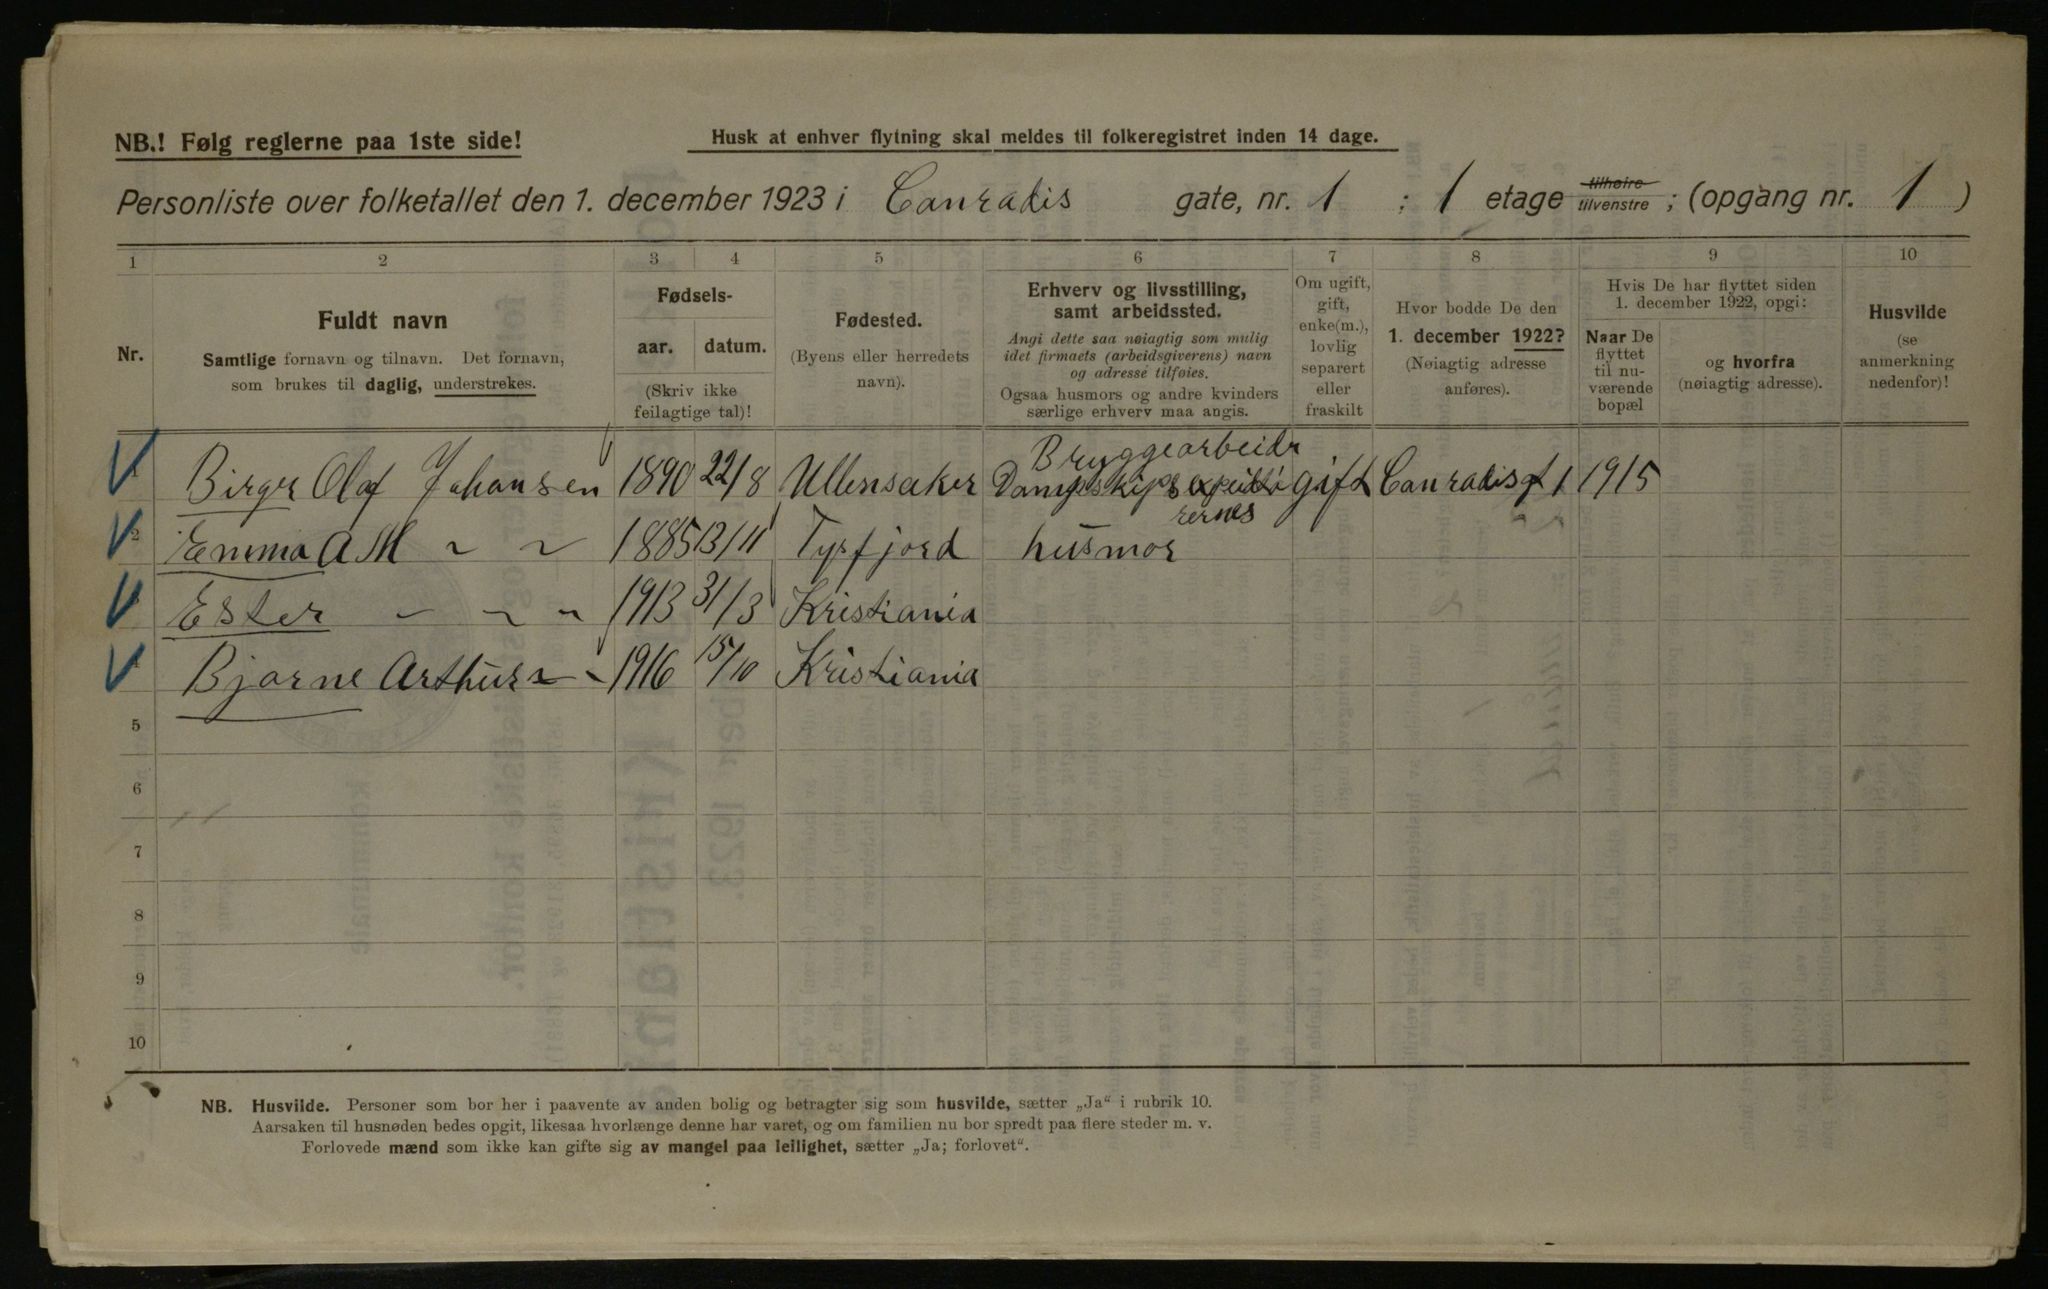 NB.! Følg reglerne paa 1ste side!
Husk at enhver flytning skal meldes til folkeregistret inden 14 dage.
Personliste over folketallet den 1. december 1923 i Conradis gate, nr. 1 ; 1 etage tilhøire tilvenstre ; (opgang nr. 1 )
1 2 3 4 5 6 7 8 9 10
Nr.
Fuldt navn
Samtlige fornavn og tilnavn. Det fornavn,
som brukes til daglig, understrekes.
Fødsels-
aar. datum.
(Skriv ikke
feilagtige tal)!
Fødested.
(Byens eller herredets
navn).
Erhverv og livsstilling,
samt arbeidssted.
Angi dette saa nøiagtig som mulig
idet firmaets (arbeidsgiverens) navn
og adresse tilføies.
Ogsaa husmors og andre kvinders
særlige erhverv maa angis.
Om ugift,
gift,
enke(m.),
lovlig
separert
eller
fraskilt
Hvor bodde De den
1. december 1922?
(Nøiagtig adresse
anføres).
Hvis De har flyttet siden
1. december 1922, opgi:
Naar De
flyttet
til nu-
værende
bopæl
og hvorfra
(nøiagtig adresse).
Husvilde
(se
anmerkning
nedenfor)!
Bryggearbeidr
Birger Olaf Johansen 1890 22/8 Ullensaker Dampskipsexpeditø gift Conradisgt 1 1915
rernes
2 Emma A M ~ ~ 1885 13/11 Tysfjord husmor
Ester ~ ~ ~ 1913 31/3 Kristiania
Bjarne Arthur ~ ~ 1916 15/10 Kristiania
5
6
7
8
9
10
NB. Husvilde. Personer som bor her i paavente av anden bolig og betragter sig som husvilde, sætter „Ja“ i rubrik 10.
Aarsaken til husnøden bedes opgit, likesaa hvorlænge denne har varet, og om familien nu bor spredt paa flere steder m. v.
Forlovede mænd som ikke kan gifte sig av mangel paa leilighet, sætter „Ja; forlovet“.